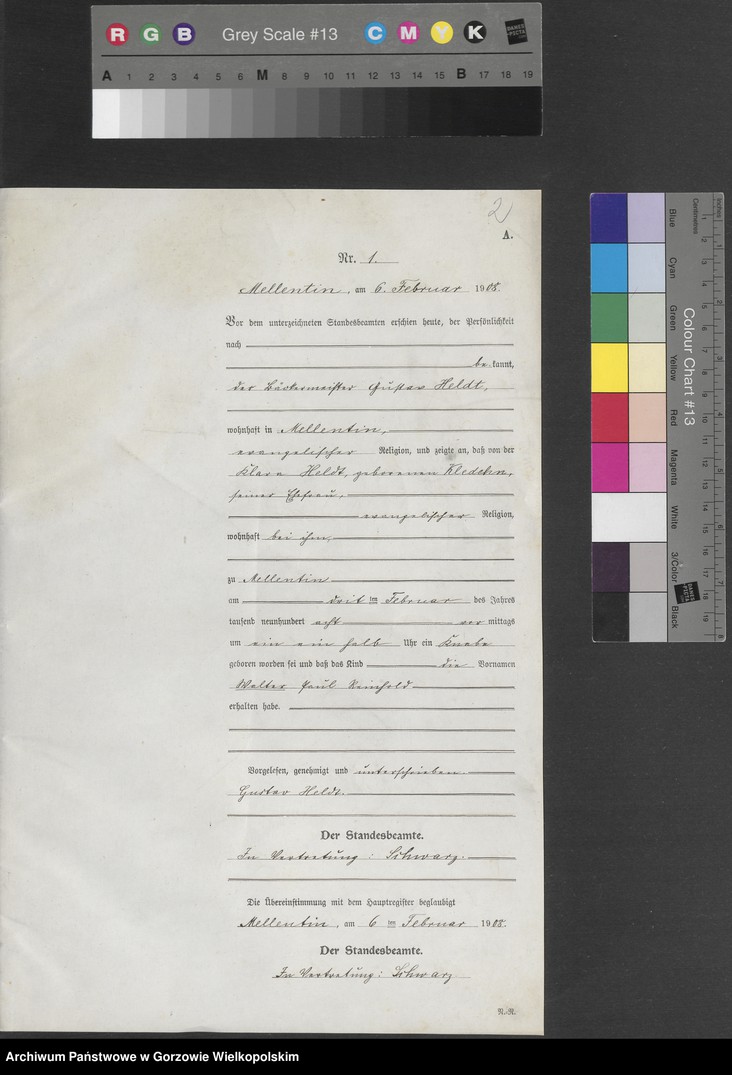 R G B Grey Scale #13 C M Y K DANES PICTA
A 1 2 3 4 5 6 M 8 9 10 11 12 13 14 15 B 17 18 19
2
A.
Nr. 1.
Mellentin, am 6. Februar 1908.
Vor dem unterzeichneten Standesbeamten erschien heute, der Persönlichkeit
nach
be kannt,
der Bäckermeister Gustav Heldt,
wohnhaft in Mellentin,
evangelischer Religion, und zeigte an, daß von der
Klara Heldt, geborenen
seiner Ehefrau,
evangelischer Religion,
wohnhaft bei ihm,
zu Mellentin
am drit ten Februar des Jahres
tausend neunhundert acht vor mittags
um ein ein halb Uhr ein Knabe
geboren worden sei und daß das Kind die Vornamen
Walter Paul Reinhold
erhalten habe.
Vorgelesen, genehmigt und unterschrieben
Gustav Heldt.
Der Standesbeamte.
In Vertretung: Schwarz.
Die Übereinstimmung mit dem Hauptregister beglaubigt
Mellentin, am 6 ten Februar 1908.
Der Standesbeamte.
In Vertretung: Schwarz
R.-R.
Colour Chart #13
Blue Cyan Green Yellow Red Magenta White 3/Color Black
Centimetres Inches
DANES PICTA
Archiwum Państwowe w Gorzowie Wielkopolskim